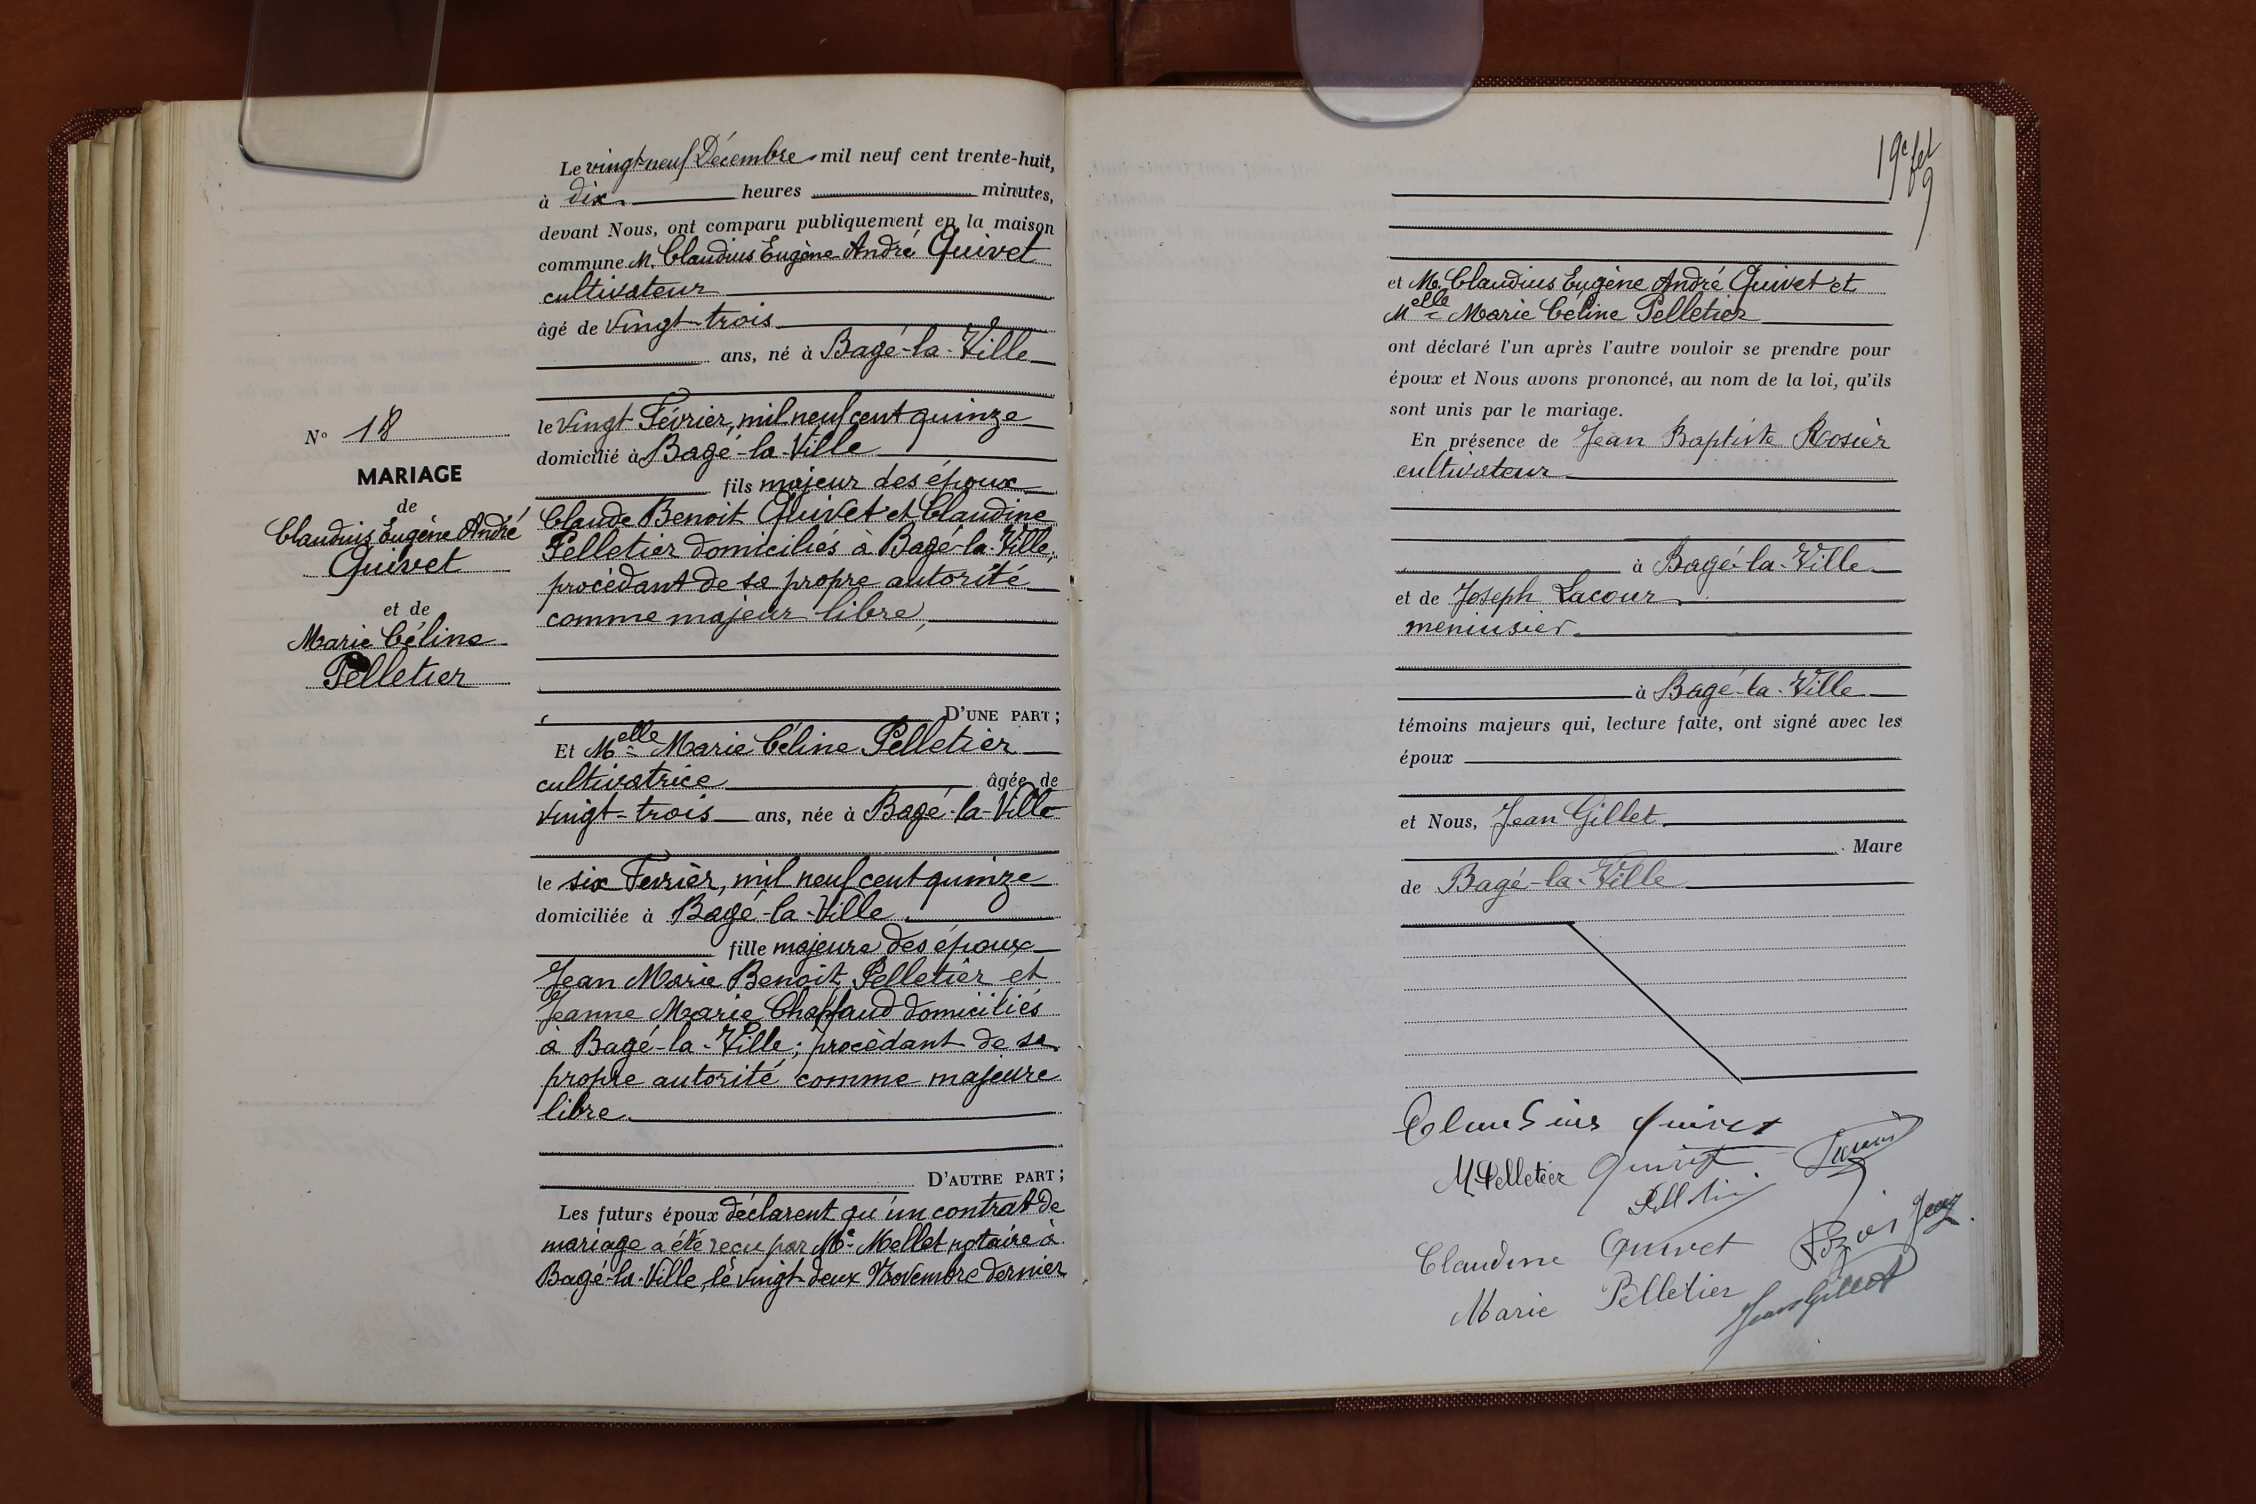 N° 18
MARIAGE
de
Claudius Eugène André
Quivet
et de
Marie Céline
Pelletier
Le vingt-neuf Décembre mil neuf cent trente-huit,
à dix heures minutes,
devant Nous, ont comparu publiquement en la maison
commune M. Claudius Eugène André Quivet
cultivateur
âgé de vingt-trois
ans, né à Bagé-la-Ville
le vingt Février, mil neuf cent quinze
domicilié à Bagé-la-Ville
fils majeur des époux
Claude Benoit Quivet et Claudine
Pelletier domiciliés à Bagé-la-Ville;
procédant de sa propre autorité
comme majeur libre,
D'UNE PART;
Et Melle Marie Céline Pelletier
cultivatrice âgée de
vingt-trois ans, née à Bagé-la-Ville
le six Février, mil neuf cent quinze
domiciliée à Bagé-la-Ville
fille majeure des époux
Jean Marie Benoit Pelletier et
Jeanne Marie Chaffaud domiciliés
à Bagé-la-Ville; procédant de sa
propre autorité comme majeure
libre
D'AUTRE PART;
Les futurs époux déclarent qu'un contrat de
mariage a été reçu par Me Mellet notaire à
Bagé-la-Ville, le vingt-deux Novembre dernier
19e
9
et M. Claudius Eugène André Quivet et
Melle Marie Céline Pelletier
ont déclaré l'un après l'autre vouloir se prendre pour
époux et Nous avons prononcé, au nom de la loi, qu'ils
sont unis par le mariage.
En présence de Jean Baptiste Rosier
cultivateur
à Bagé-la-Ville
et de Joseph Lacour
menuisier
à Bagé-la-Ville
témoins majeurs qui, lecture faite, ont signé avec les
époux
et Nous, Jean Gillet
Maire
de Bagé-la-Ville
Claudius Quivet
M Pelletier Quivet
Claudine Quivet
Marie Pelletier
Jean Gillet